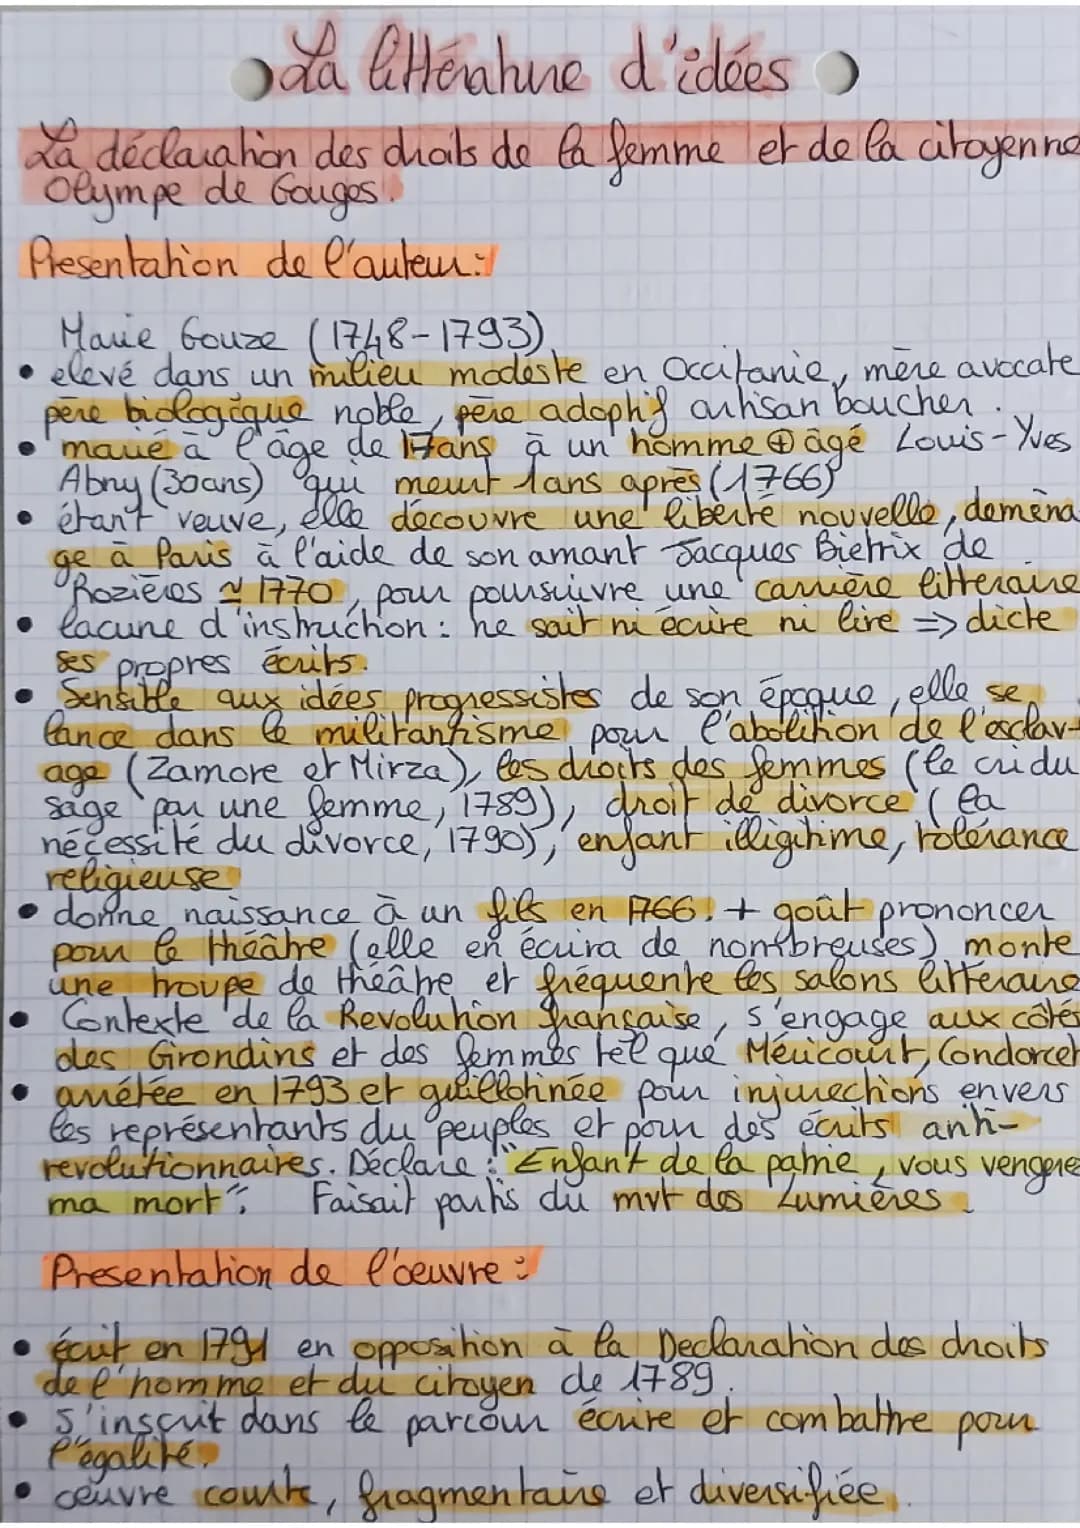 La littérature d'idées
La déclaration des droits de la femme et de la citoyenne
Olympe de Gouges.
Presentation de l'auteur:
Marie Gouze (1748-1793)
• elevé dans un milieu modeste en Occitanie, mère avocate
père biologique noble, père adoptif artisan boucher.
• marié à l'âge de 17ans à un homme ⊕ âgé Louis-Yves
Abry (30ans) qui meurt 1ans après (1766)
• étant veuve, elle découvre une liberté nouvelle, deména
ge à Paris à l'aide de son amant Jacques Bietrix de
Rozières ≃ 1770, pour poursuivre une carrière litteraire
• lacune d'instruction: ne sait ni écrire ni lire => dicte
ses propres écrits.
• Sensible aux idées progressistes de son époque, elle se
lance dans le militantisme pour l'abolition de l'esclav-
age (Zamore et Mirza), les droits des femmes (le cri du
sage par une femme, 1789), droit de divorce (la
nécessité du divorce, 1790), enfant illigitime, tolérance
religieuse
• donne naissance à un fils en 1766. + goût prononcer
pour le théâtre (elle en écrira de nombreuses) monte
une troupe de théâtre et fréquente les salons litteraire
• Contexte de la Revolution française, s'engage aux côtés
des Girondins et des femmes tel que Méricourt, Condorcet
• arrêtée en 1793 et guillotinée pour injurections envers
les représentants du peuples et pour des écrits anti-
revolutionnaires. Déclare: "Enfant de la patrie, vous vengere
ma mort". Faisait partis du mvt des Lumières.
Presentation de l'œuvre:
• écrit en 1791 en opposition à la Declaration des droits
de l'homme et du citoyen de 1789.
• S'inscrit dans le parcour écrire et combattre pour
l'égalité.
• œuvre courte, fragmentaire et diversifiée.